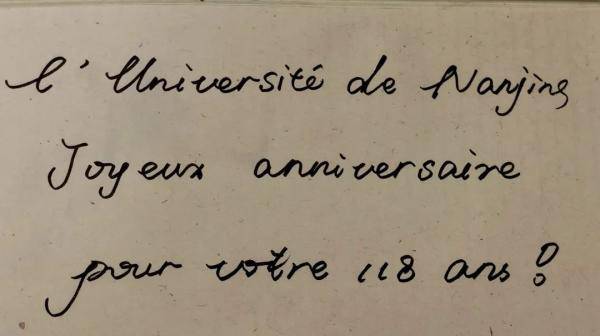 l'Université de Nanjing
Joyeux anniversaire
pour votre 118 ans !